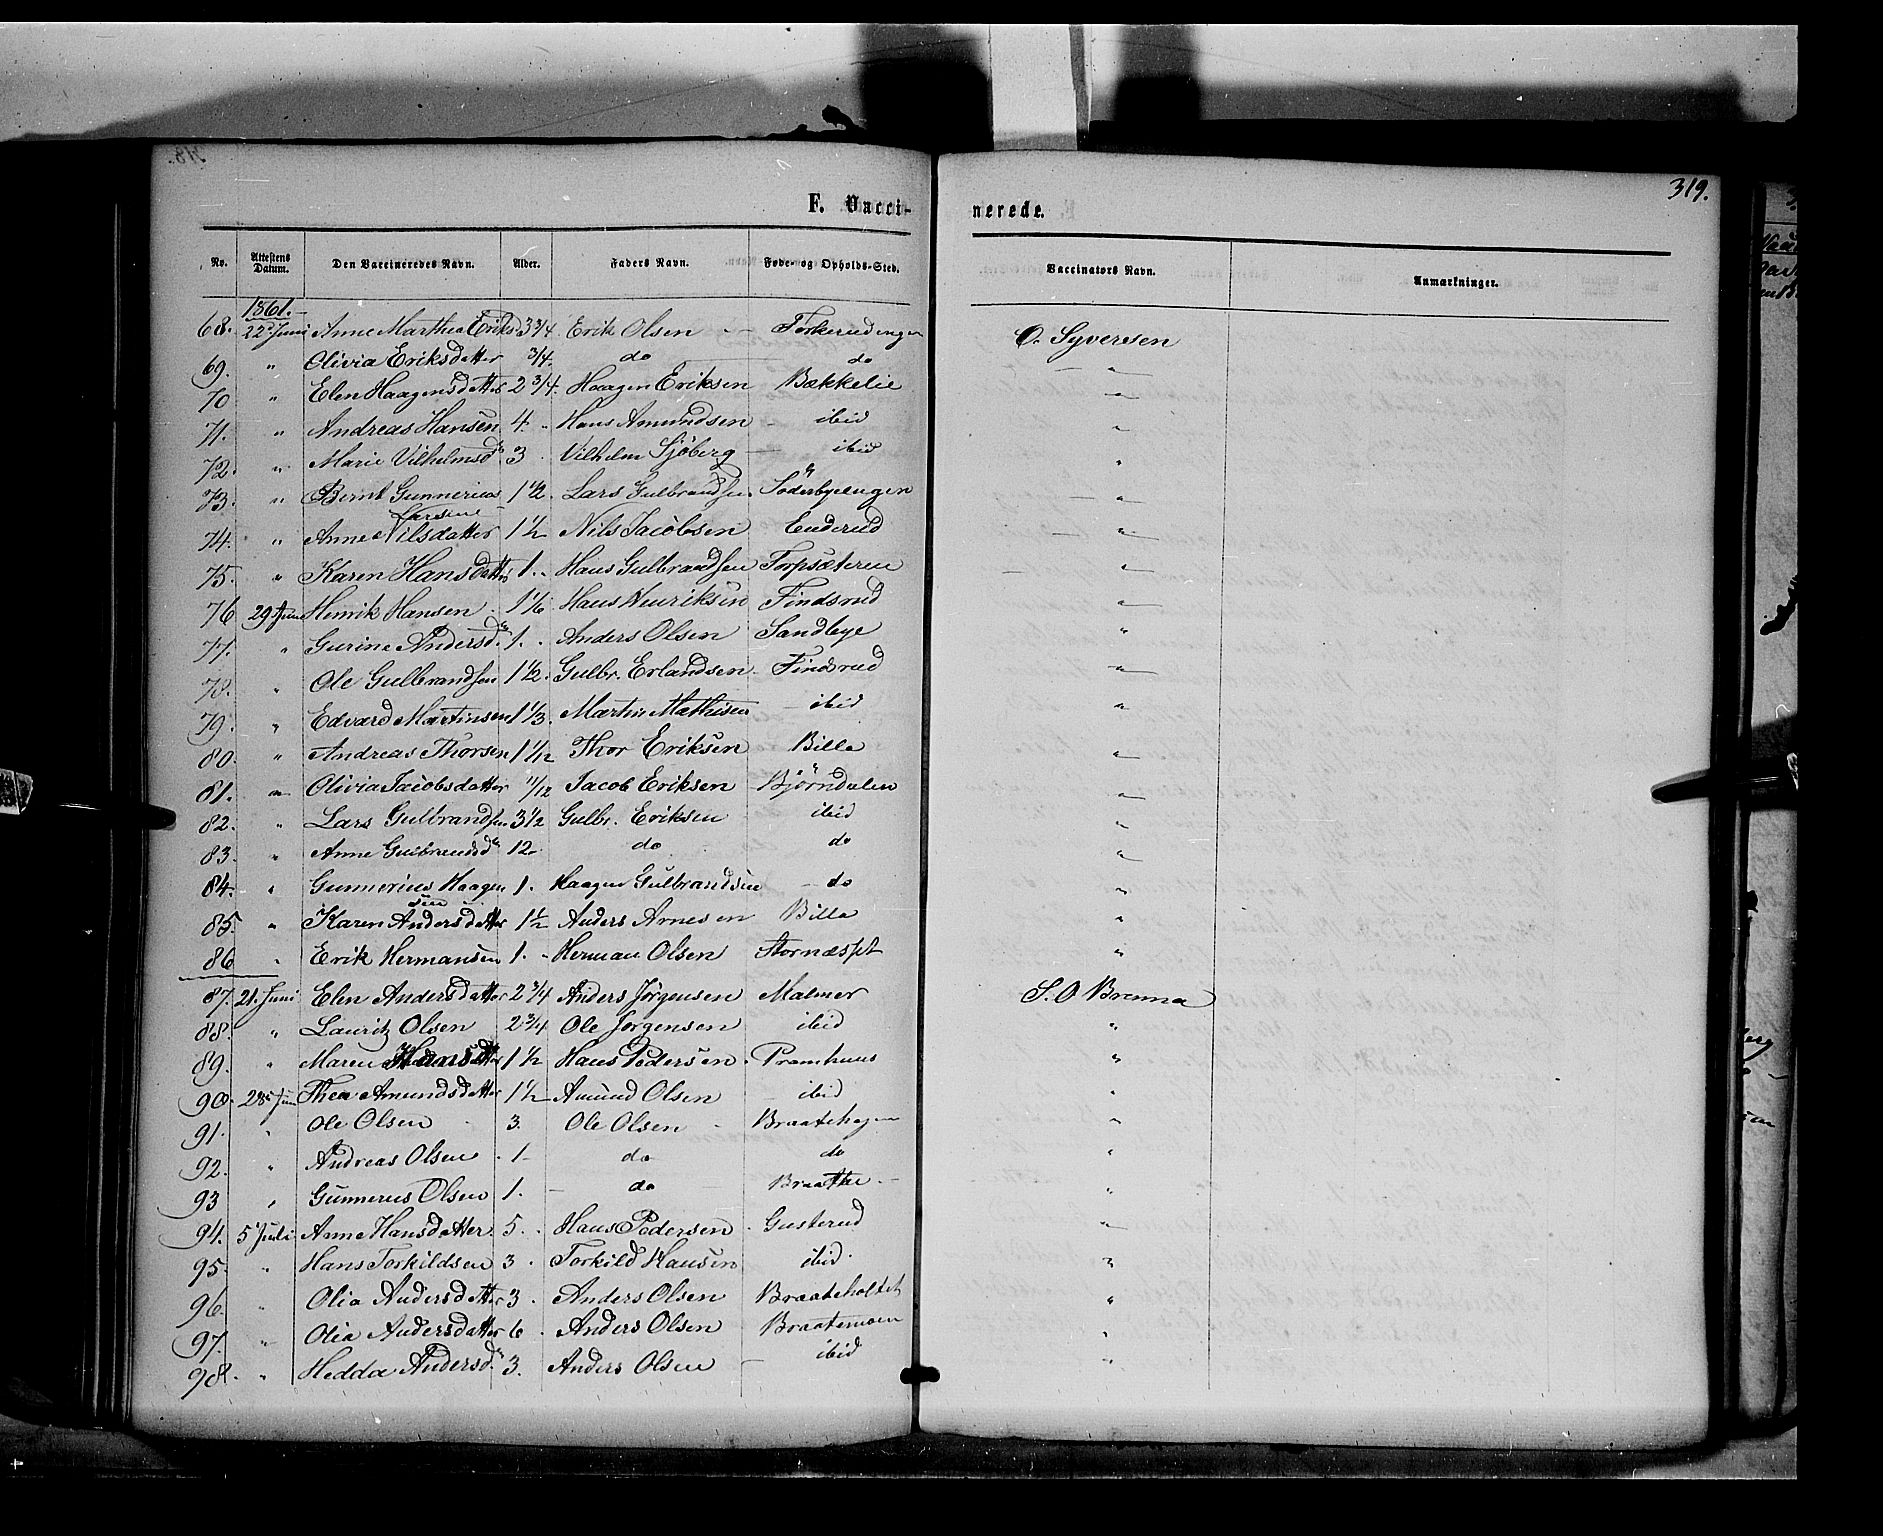 318.
319.
F. Vacci-
nerede.
No. Attestens Datum. Den Vaccineredes Navn. Alder. Faders Navn. Føde- og Opholds-Sted. Vaccinators Navn. Anmærkninger.
1861.
68. 22 Juni Anne Marthea Eriksd 3 3/4 Erik Olsen - - Torkerudengen O. Syversen
69. " Olivia Eriksdatter 3/4. do do "
70 " Elen Haagensdatter 2 3/4. Haagen Eriksen Bækkelie "
71. " Andreas Hansen 4. Hans Amundsen - ibid "
72. " Marie Vilhelmsd. 3 Vilhelm Sjöberg - ibid "
73. " Bernt Gunnerius Larsen 1 1/2. Lars Gulbrandsen Söderbyeengen "
74. " Anne Nilsdatter 1 1/2 Nils Jacobsen Enderud "
75. " Karen Hansdatter 1. Hans Gulbrandsen Torpsæteren "
76 29 Juni Henrik Hansen 1 1/6 Hans Henriksen Findsrud "
77. " Gurine Andersd. 1. Anders Olsen Sandbye "
78. " Ole Gulbrandsen 1 1/2. Gulbr. Erlandsen Findsrud "
79. " Edvard Martinsen 1 1/3. Martin Mathisen - ibid "
80. " Andreas Thorsen 1 1/12 Thor Eriksen Billa "
81. " Olivia Jacobsdatter 11/12 Jacob Eriksen Björndalen "
82. " Lars Gulbrandsen 3 1/2 Gulbr. Eriksen ibid "
83. " Anne Gulbrandsd. 12. do do "
84. " Gunnerius Haagensen 1. Haagen Gulbrandsen - do "
85. " Karen Andersdatter 1 1/2 Anders Arnesen Billa "
86 " Erik Hermansen 1. Herman Olsen Stornæsset "
87. 21. Juni Elen Andersdatter 2 3/4 Anders Jörgensen Malmer S. O Brenna
88. " Lauritz Olsen 2 3/4 Ole Jørgensen ibid "
89. " Maren Hansdatter 1 1/2 Hans Pedersen Pramhuus "
90. 28 Juni Thea Amundsdatter 1 1/2 Amund Olsen - ibid "
91. " Ole Olsen 3. Ole Olsen Braatehagen "
92. " Andreas Olsen 1. do do "
93 " Gunnerus Olsen 1. - do Braathe - "
94. 5 Juli Anne Hansdatter. 5. Hans Pedersen Gusterud "
95. " Hans Torkildsen 3 Torkild Hansen ibid. "
96. " Olia Andersdatter 3. Anders Olsen Braateholtet "
97. " Olia Andersdatter 6. Anders Olsen Braatemoen "
98. " Hedda Andersd. 3. Anders Olsen - ibid "